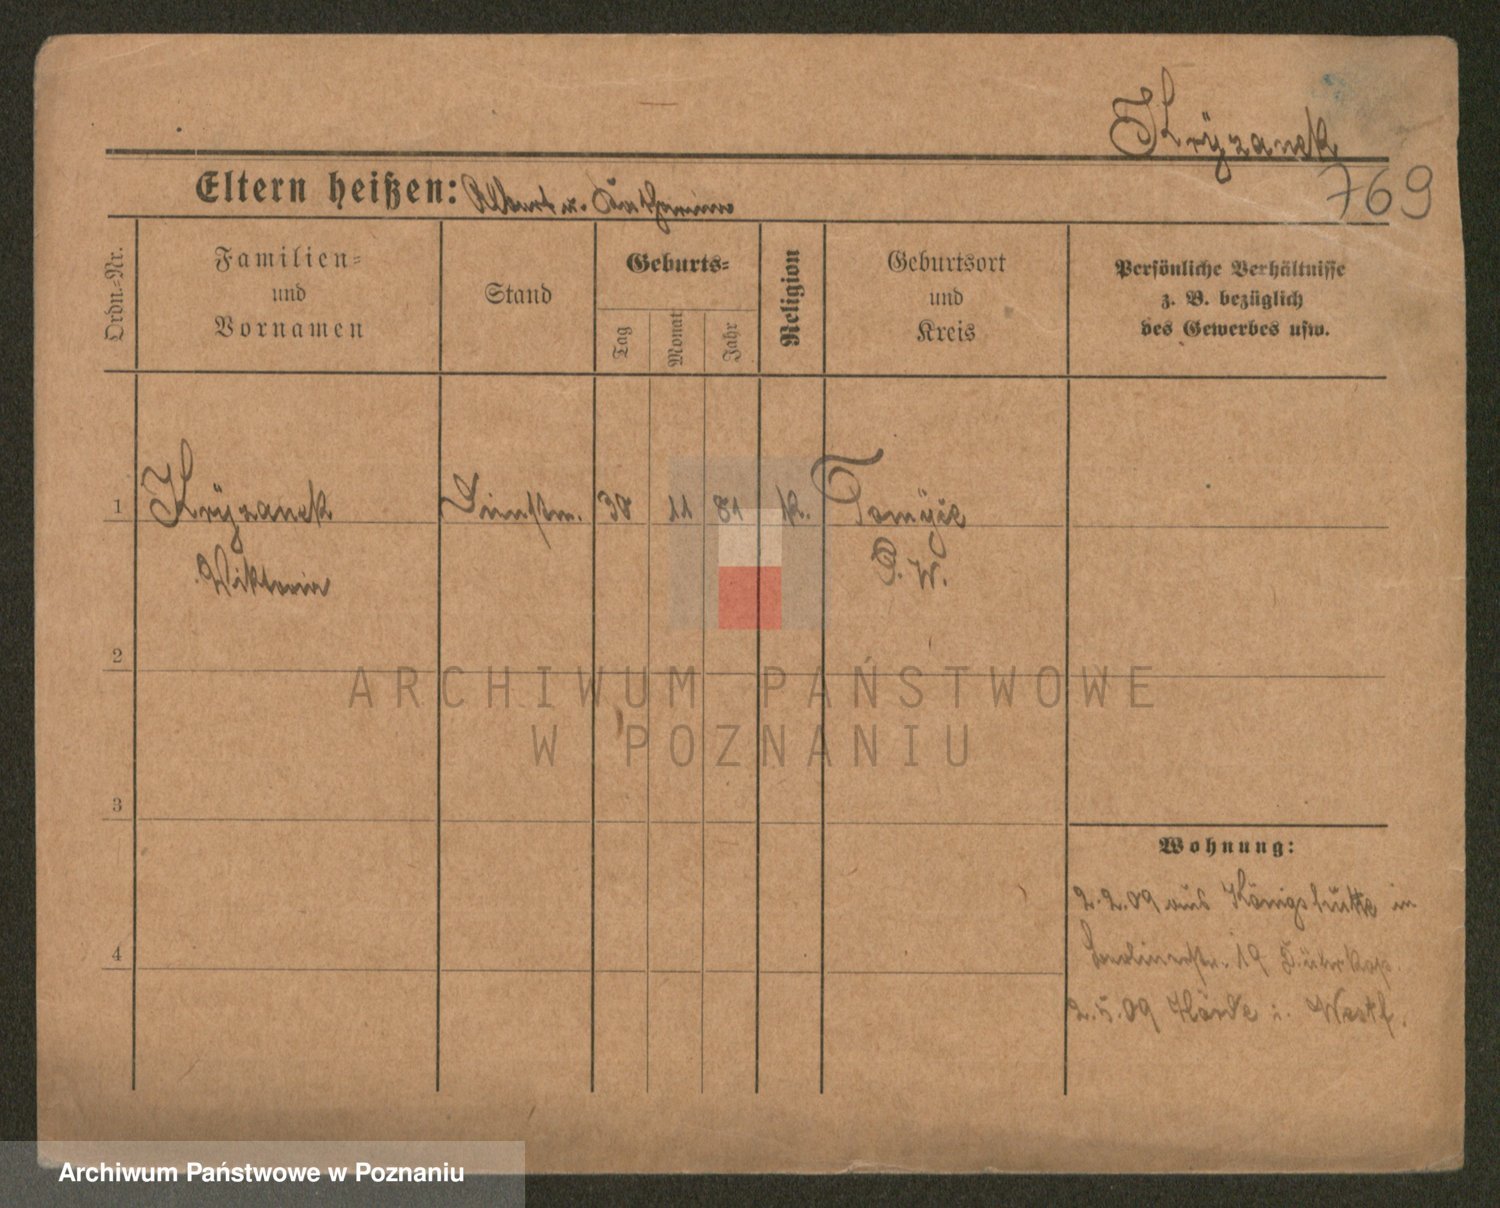 Kryzanek
769
Eltern heißen: Albert u. Katharina
Ordn.-Nr.
Familien-
und
Vornamen
Stand
Geburts-
Tag
Monat
Jahr
Religion
Geburtsort
und
Kreis
Persönliche Verhältnisse
z. B. bezüglich
des Gewerbes usw.
1 Krÿzanek Dienstm. 30 11 81 k. Tomÿśl
Wiktoria
P. W.
2
3
4
Wohnung:
2.2.09 aus Königshütte in
Berlinerstr. 19
2.5.09 Hörde i. Westf.
ARCHIWUM PAŃSTWOWE
W POZNANIU
Archiwum Państwowe w Poznaniu